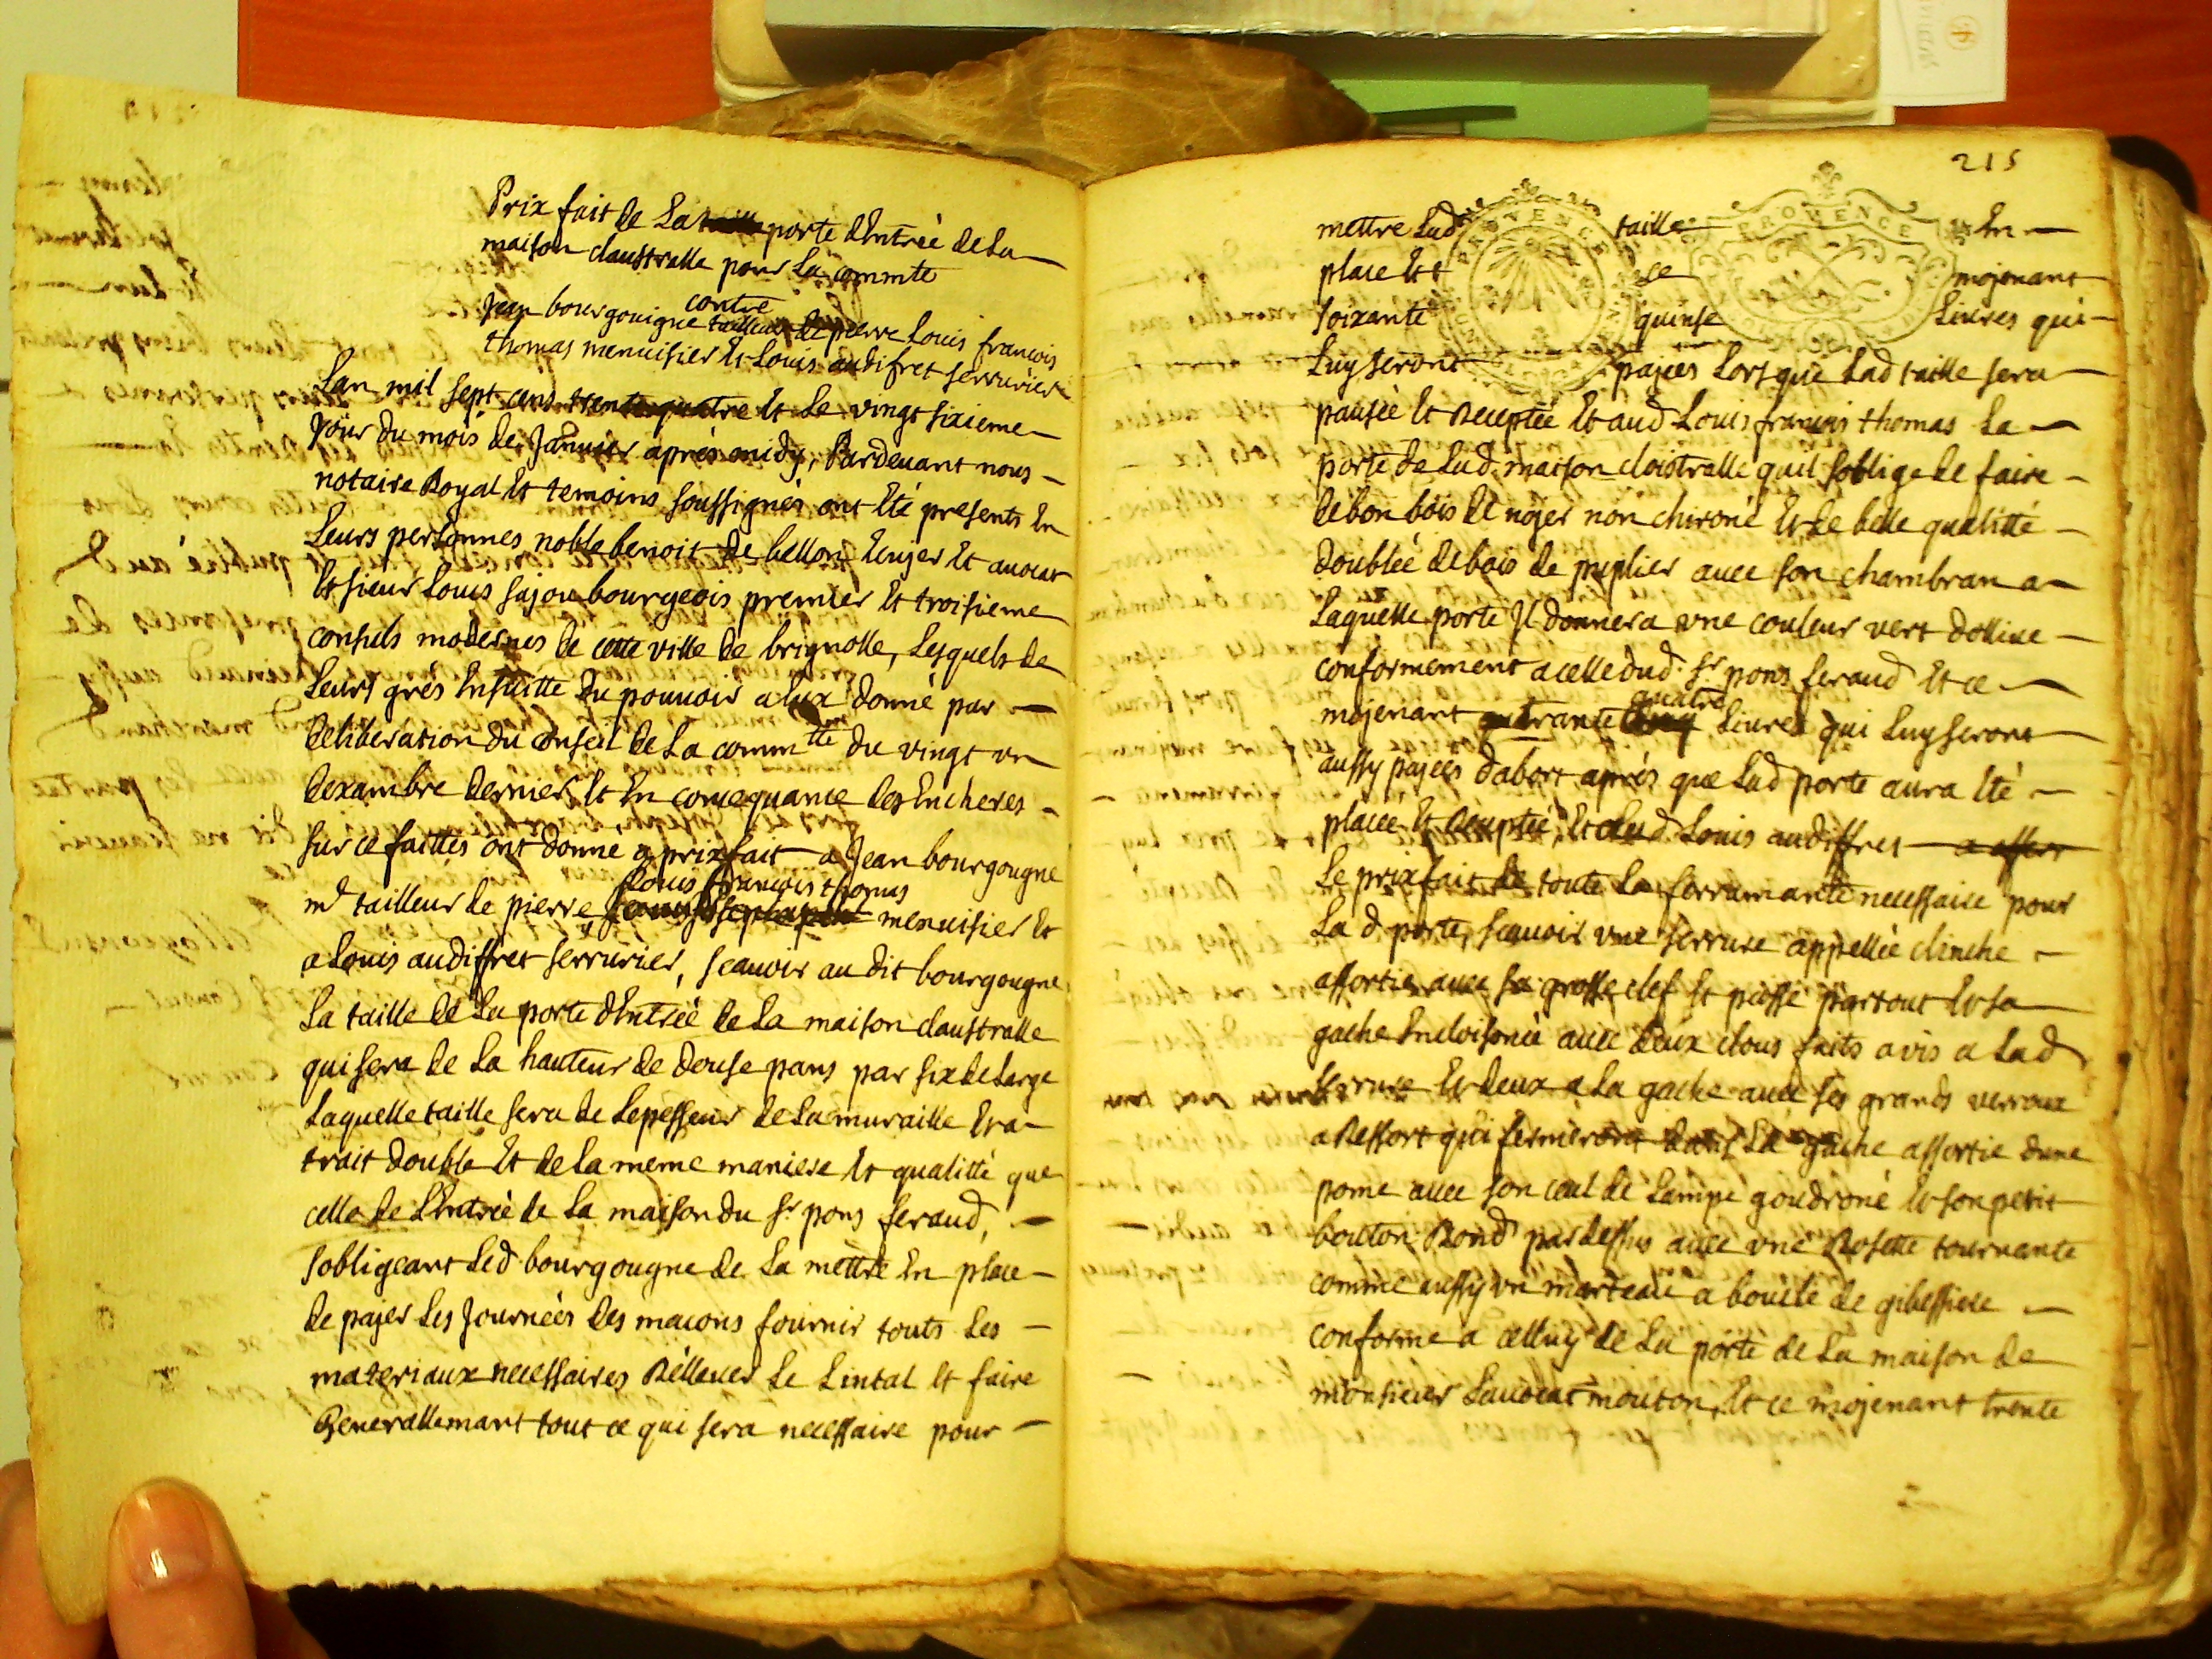 Prix fait de La porte d'Entrée de La
maison claustralle pour La commte
contre
Jean bourgouigne tailleur de pierre Louis françois
thomas menuisier Et Louis audifret serrurier
Lan mil sept cens trente quatre Et Le vingt sixieme
Jour du mois de Janvier aprés midy, Pardevant nous
notaire Royal Et temoins soussignés ont Eté presents En
Leurs personnes noble benoit de bellon Ecuyer Et avocat
Et sieur Louis sajou bourgeois premier Et troisieme
consuls modernes de cette ville de brignolle, Lesquels de
Leurs grés Ensuitte du pouvoir a Eux donné par
deliberation du conseil de La commtté du vingt un
dexambre dernier Et En consequance des Encheres
sur ce faittes ont donné a prixfait a Jean bourgougne
Louis françois thomas
md tailleur de pierre menuisier Et
a Louis audiffret serrurier, scavoir au dit bourgougne
La taille de La porte d'Entrée de La maison claustralle
qui sera de La hauteur de douse pans par six de Large
Laquelle taille sera de Lepesseur de La muraille Et a
trait double Et de La meme maniere Et qualitté que
celle de L'Entrée de La maison du Sr pons feraud,
sobligeant Led bourgougne de La mettre En place
de pajer Les Journées des macons fournir touts Les
materiaux necessaires Rellever Le Lintal Et faire
Generallemant tout ce qui sera necessaire pour
215
PROVENCE
PROVENCE
mettre Lad taille En
place Et ce mojenant
soixante quinse Livres qui
Luy seront pajées Lors que Lad taille sera
pausée Et Receptée Et aud Louis françois thomas La
porte de Lad maison cloistralle quil soblige de faire
de bon bois de nojer non chironé Et de belle qualitté
doublée de bois de puplier avec son chambran a
Laquelle porte Jl donnera une couleur vert dollive
conformement a celle dud Sr pons feraud Et ce
quatre
mojenant Livres qui Luy seront
aussy pajées dabort aprés que Lad porte aura Eté
placée Et Receptée, Et aud Louis audiffret
Le prixfait de toute La ferramante necessaire pour
La d porte, scavoir une serrure appellée clinche
assortie avec sa grosse clef Et passe partout Et sa
gache Encloisonée avec deux clous faits a vis a Lad
serrure Et deux a La gache avec ses grands verroux
a Ressort qui fermeront dans La gache assortie dune
pome avec son ceul de Lampe goudroné Et son petit
bouton Rond par dessus avec une Rosette tournante
comme aussy un marteau a boucle de gibessiere
conforme a celluy de La porte de La maison de
monsieur Lavocat mouton, Et ce mojenant trente